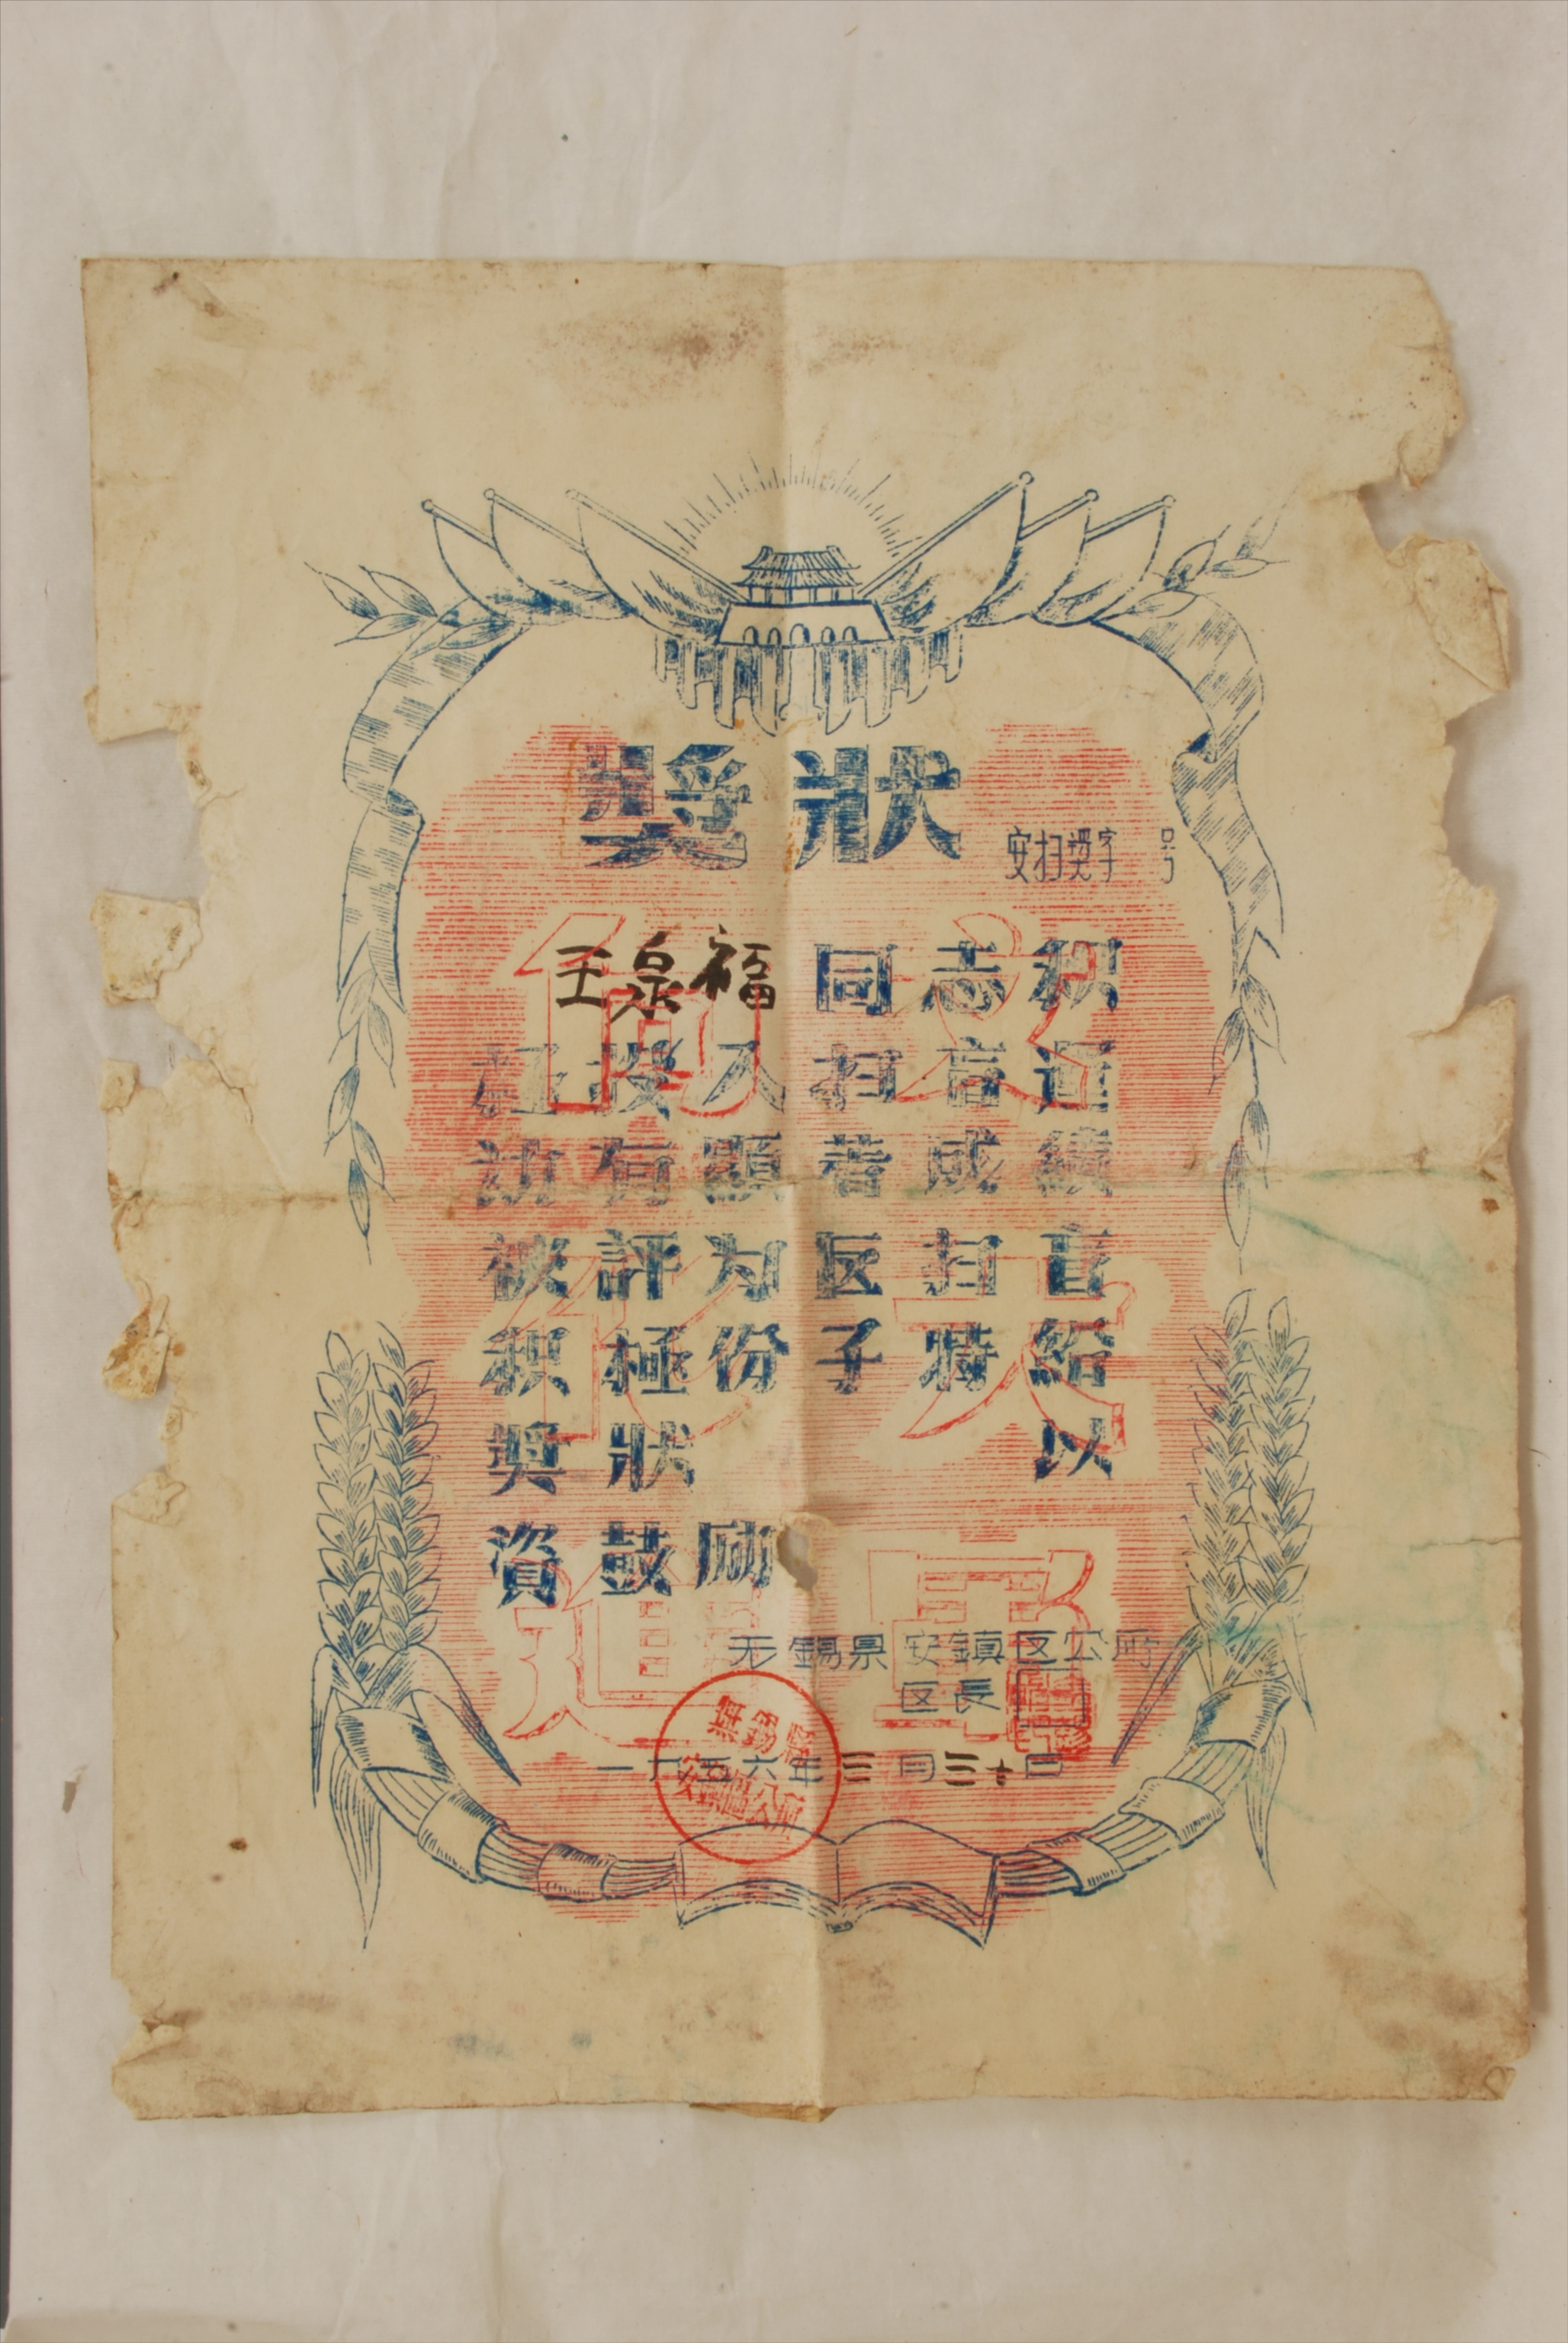 獎狀
安扫奬字 号
王泉福同志积
極投入扫盲运
动有顯著成績
被評为区扫盲
积極份子特給
奬狀 以
資鼓励
无錫県安鎮区公所
区長
一九五六年三月三十日
向文
化大
進軍
無錫縣
安鎮區公所